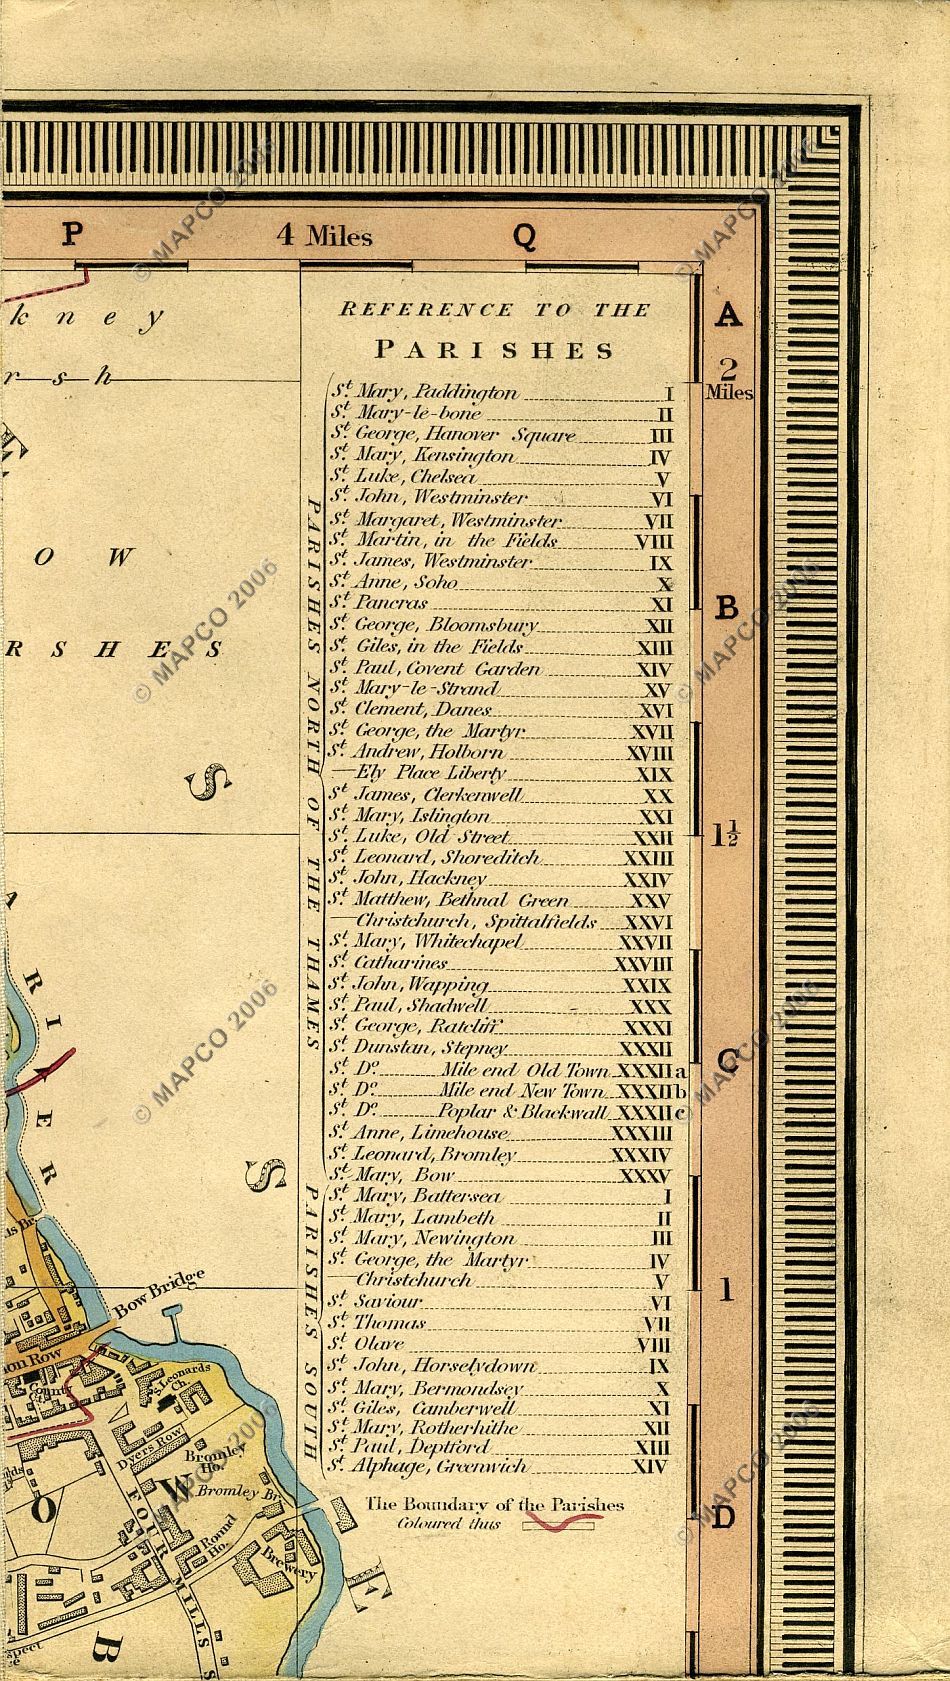 P 4 Miles Q
REFERENCE TO THE
PARISHES
PARISHES NORTH OF THE THAMES
St. Mary, Paddington I
St. Mary-le-bone II
St. George, Hanover Square III
St. Mary, Kensington IV
St. Luke, Chelsea V
St. John, Westminster VI
St. Margaret, Westminster VII
St. Martin, in the Fields VIII
St. James, Westminster IX
St. Anne, Soho X
St. Pancras XI
St. George, Bloomsbury XII
St. Giles, in the Fields XIII
St. Paul, Covent Garden XIV
St. Mary-le-Strand XV
St. Clement, Danes XVI
St. George, the Martyr XVII
St. Andrew, Holborn XVIII
—Ely Place Liberty XIX
St. James, Clerkenwell XX
St. Mary, Islington XXI
St. Luke, Old Street XXII
St. Leonard, Shoreditch XXIII
St. John, Hackney XXIV
St. Matthew, Bethnal Green XXV
—Christchurch, Spittalfields XXVI
St. Mary, Whitechapel XXVII
St. Catharines XXVIII
St. John, Wapping XXIX
St. Paul, Shadwell XXX
St. George, Ratcliff XXXI
St. Dunstan, Stepney XXXII
St. Do. Mile end Old Town XXXIIa
St. Do. Mile end New Town XXXIIb
St. Do. Poplar & Blackwall XXXIIc
St. Anne, Limehouse XXXIII
St. Leonard, Bromley XXXIV
St. Mary, Bow XXXV
PARISHES SOUTH
St. Mary, Battersea I
St. Mary, Lambeth II
St. Mary, Newington III
St. George, the Martyr IV
—Christchurch V
St. Saviour VI
St. Thomas VII
St. Olave VIII
St. John, Horselydown IX
St. Mary, Bermondsey X
St. Giles, Camberwell XI
St. Mary, Rotherhithe XII
St. Paul, Deptford XIII
St. Alphage, Greenwich XIV
The Boundary of the Parishes
Coloured thus
A
2
Miles
B
1½
C
1
D
kney
rsh
OW
RSHES
S
S
RIVER
Bow Bridge
on Row
S. Leonards
Ch.
Dyers Row
Bromley
Ho.
Bromley Br.
O W
FOUR MILLS S
Round
Ho.
Brewery
E
B
© MAPCO 2006
© MAPCO 2006
© MAPCO 2006
© MAPCO 2006
© MAPCO 2006
© MAPCO 2006
© MAPCO 2006
© MAPCO 2006